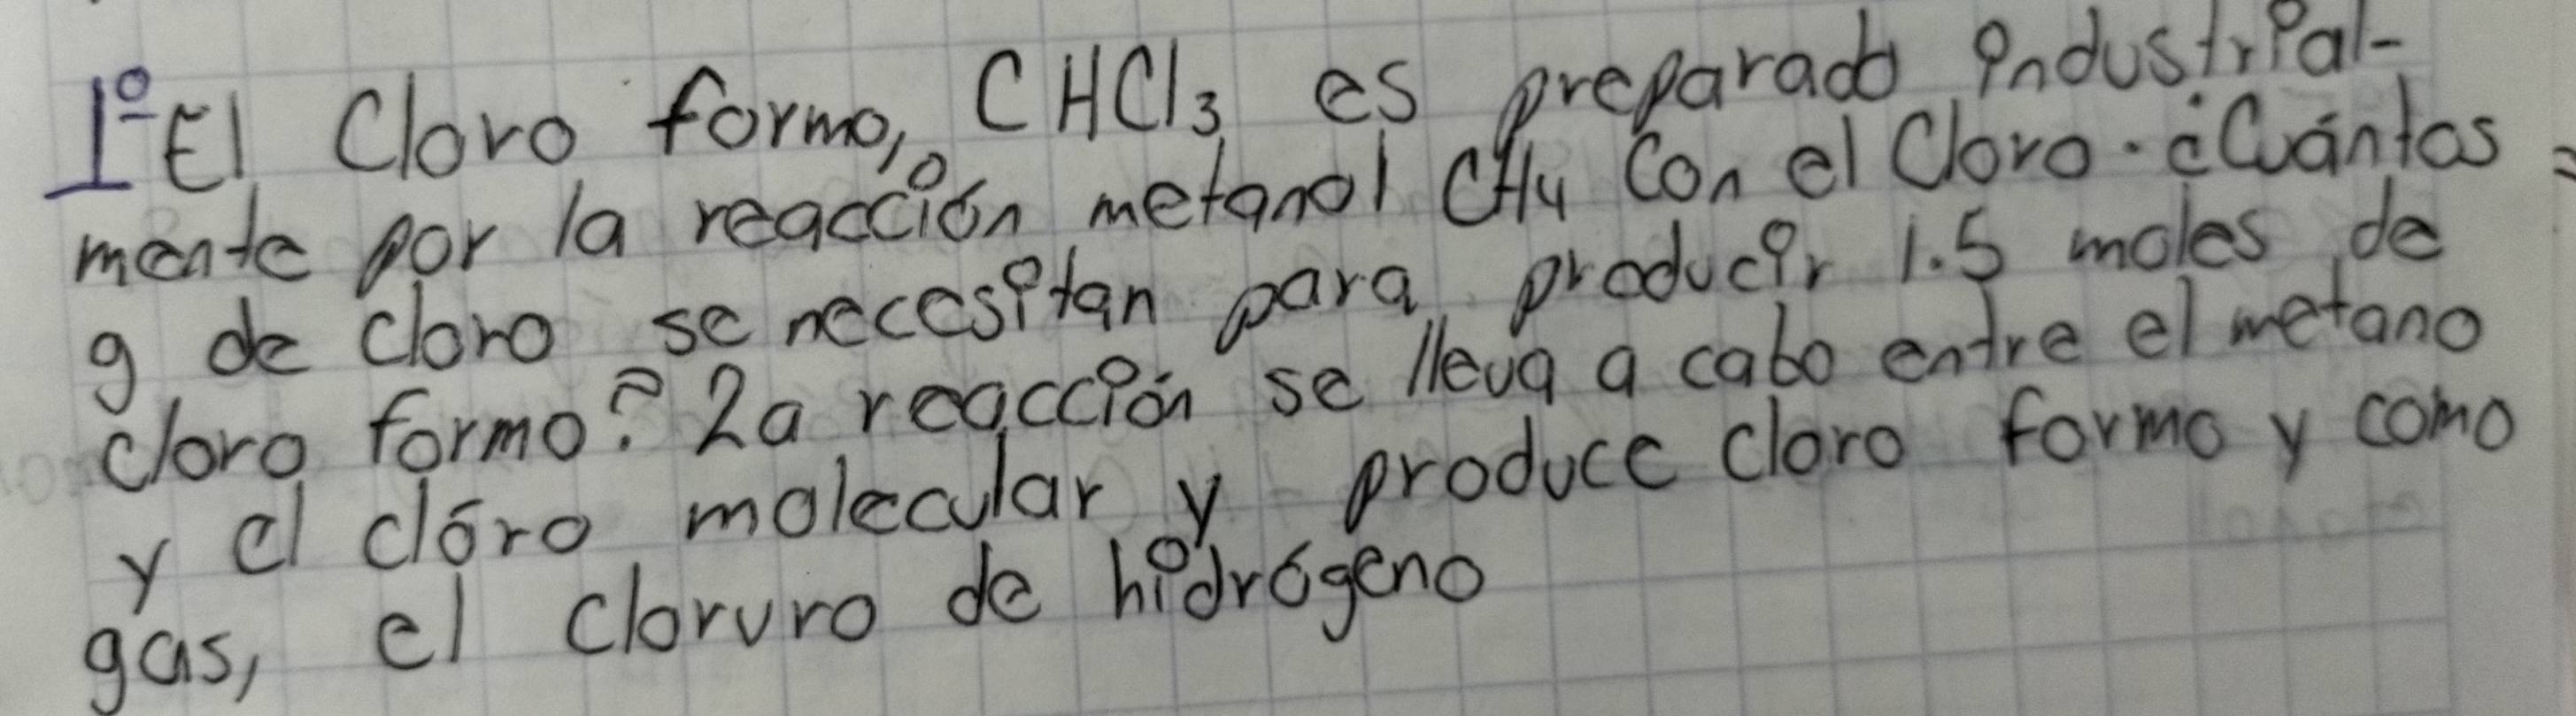 1º El Cloro formo, CHCl3 es preparado industrial-
mente por la reacción metanol CH4 Con el Cloro. ¿Cuántos
g de cloro se necesitan para producir 1.5 moles de
cloro formo? La reacción se lleva a cabo entre el metano
y el clóro molecular y produce cloro formo y como
gas, el cloruro de hidrógeno